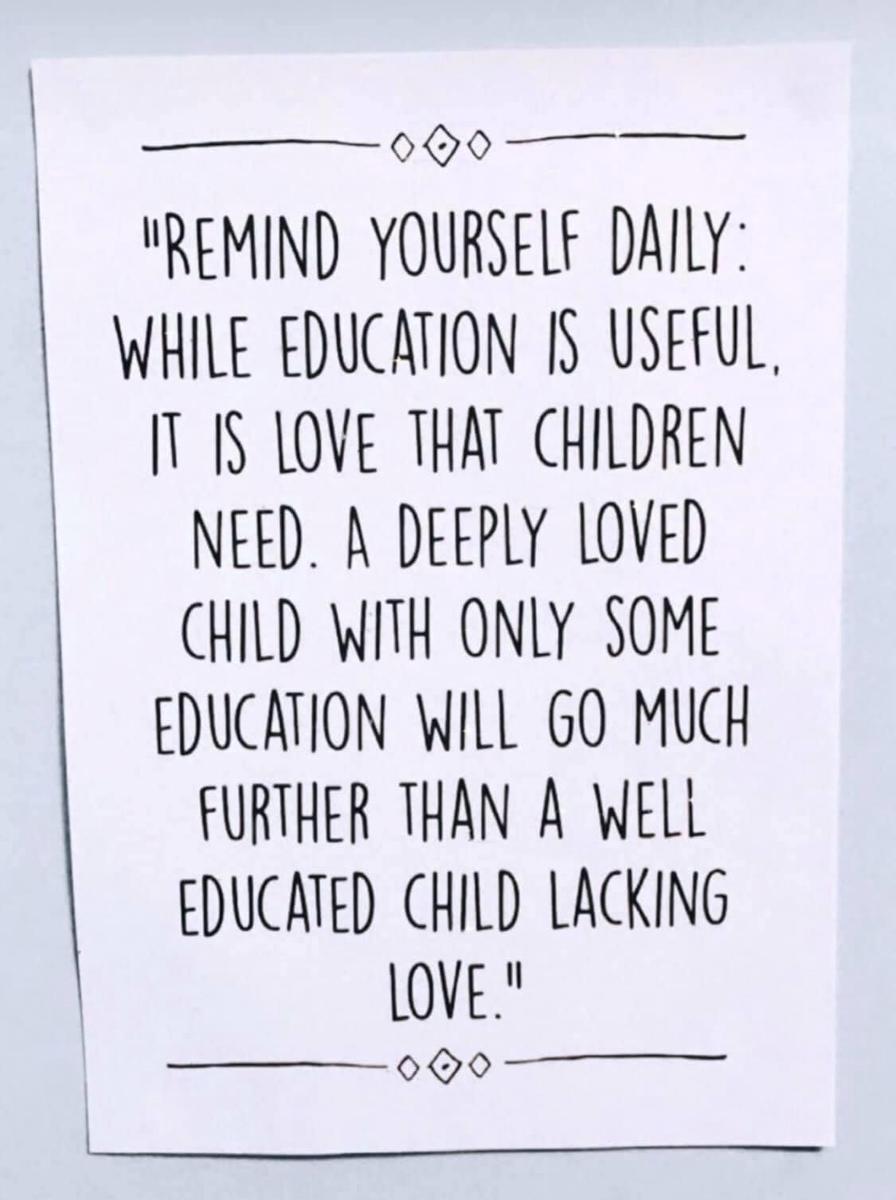 "REMIND YOURSELF DAILY:
WHILE EDUCATION IS USEFUL,
IT IS LOVE THAT CHILDREN
NEED. A DEEPLY LOVED
CHILD WITH ONLY SOME
EDUCATION WILL GO MUCH
FURTHER THAN A WELL
EDUCATED CHILD LACKING
LOVE."